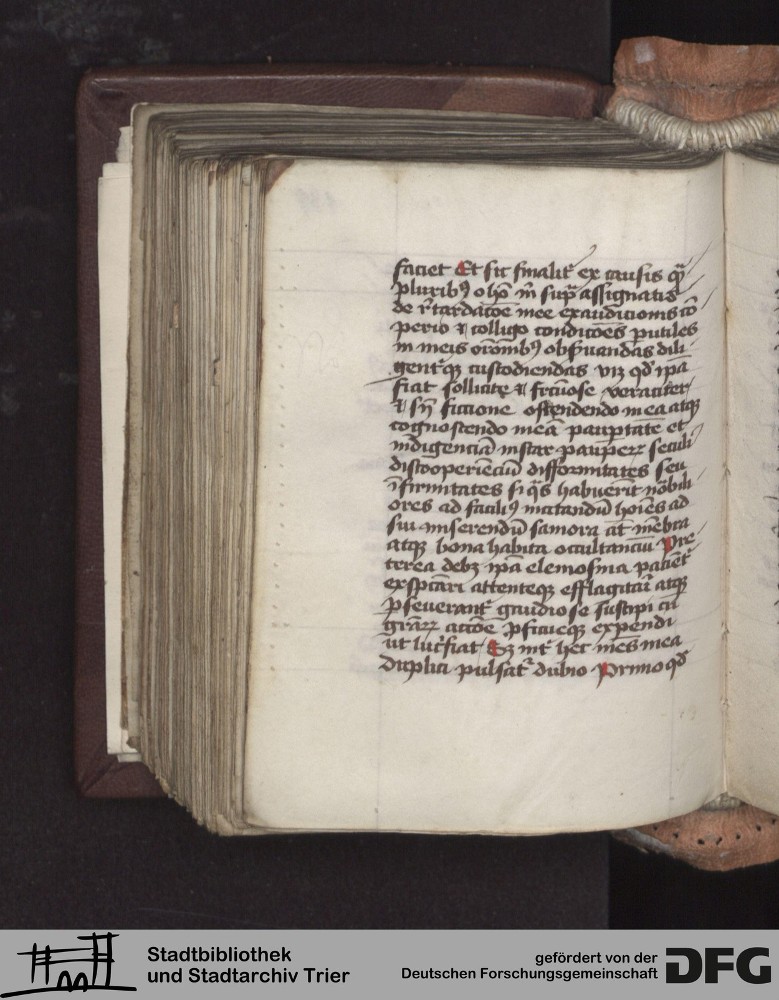 faciet Et sic finalit̄ ex causis qͣ
pluribꝯ o hō m̄ sup̄ assignatis
de r̄tardacōe mee exaudicionis cō
perio ⁊ colligo condicōes putiles
in meis orōnibꝯ obsͬuandas dili
gent̄qꝫ custodiendas viz qd̓ ip̄a
fiat sollicite ⁊ frc̄uose veraciter
⁊ sn̄ fictione ostendendo mea atqꝫ
cognoscendo meā paup̄tatē et
indigenciā instar paupeꝝ seculi
discooperienciū difformitates seu
īfirmitates si qͣs habuerīt nōbili
ores ad faciliꝯ incitandū hoīes ad
sui miserendū saniora aūt mēbra
atqꝫ bona habita occultanciū Pre
terea debꝫ ip̄a elemosina pacient̄
exspectari attenteqꝫ efflagitari atqꝫ
p̄severant̄ gaudiose suscipi cū
gr̄aꝝ accōe ꝓficueqꝫ expendi
ut luc̄fiat Sꝫ int̄ hec mēs mea
duplici pulsat̄ dubio Primo qd̓
Stadtbibliothek
und Stadtarchiv Trier
gefördert von der
Deutschen Forschungsgemeinschaft
DFG